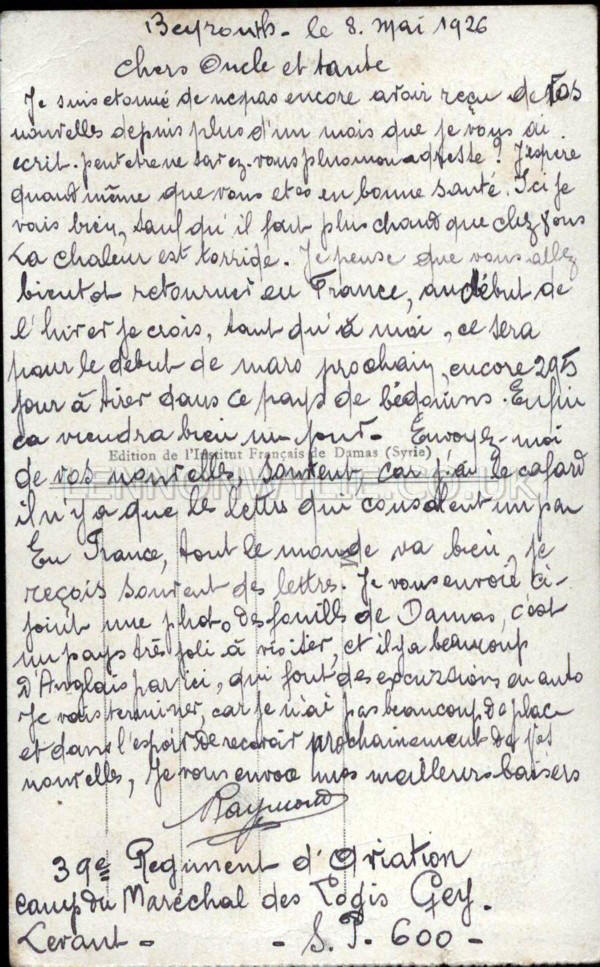 Beyrouth - le 8. Mai 1926
Chers Oncle et tante
Je suis etonné de ne pas encore avoir reçu de vos
nouvelles depuis plus d'un mois que je vous ai
ecrit. peut etre ne savez-vous plus mon adresse? J'espere
quand même que vous etes en bonne santé. Ici je
vais bien, sauf qu'il fait plus chaud que chez vous
La chaleur est torride. Je pense que vous allez
bientot retourner en France, au début de
l'hiver je crois, tant qu'à moi, ce sera
pour le début de mars prochain, encore 295
jour à tirer dans ce pays de bédouins. Enfin
ca viendra bien un jour - Envoyez-moi
Edition de l'Institut Français de Damas (Syrie)
de vos nouvelles, souvent car j'ai le cafard
LENNONWYLIE.CO.UK
il n'y a que les lettres qui consolent un peu
En France, tout le monde va bien, je
reçois souvent des lettres. Je vous envoie ci-
joint une photo des fouilles de Damas, c'est
un pays très joli à visiter, et il y a beaucoup
d'Anglais par ici, qui font des excurssions en auto
Je vais terminer, car je n'ai pas beaucoup de place
et dans l'espoir de recevoir prochainement de vos
nouvelles, Je vous envoie mes meilleurs baisers
Raymond
39e Regiment d'Aviation
camp du Maréchal des Logis Gey.
Levant - - S.P. 600 -